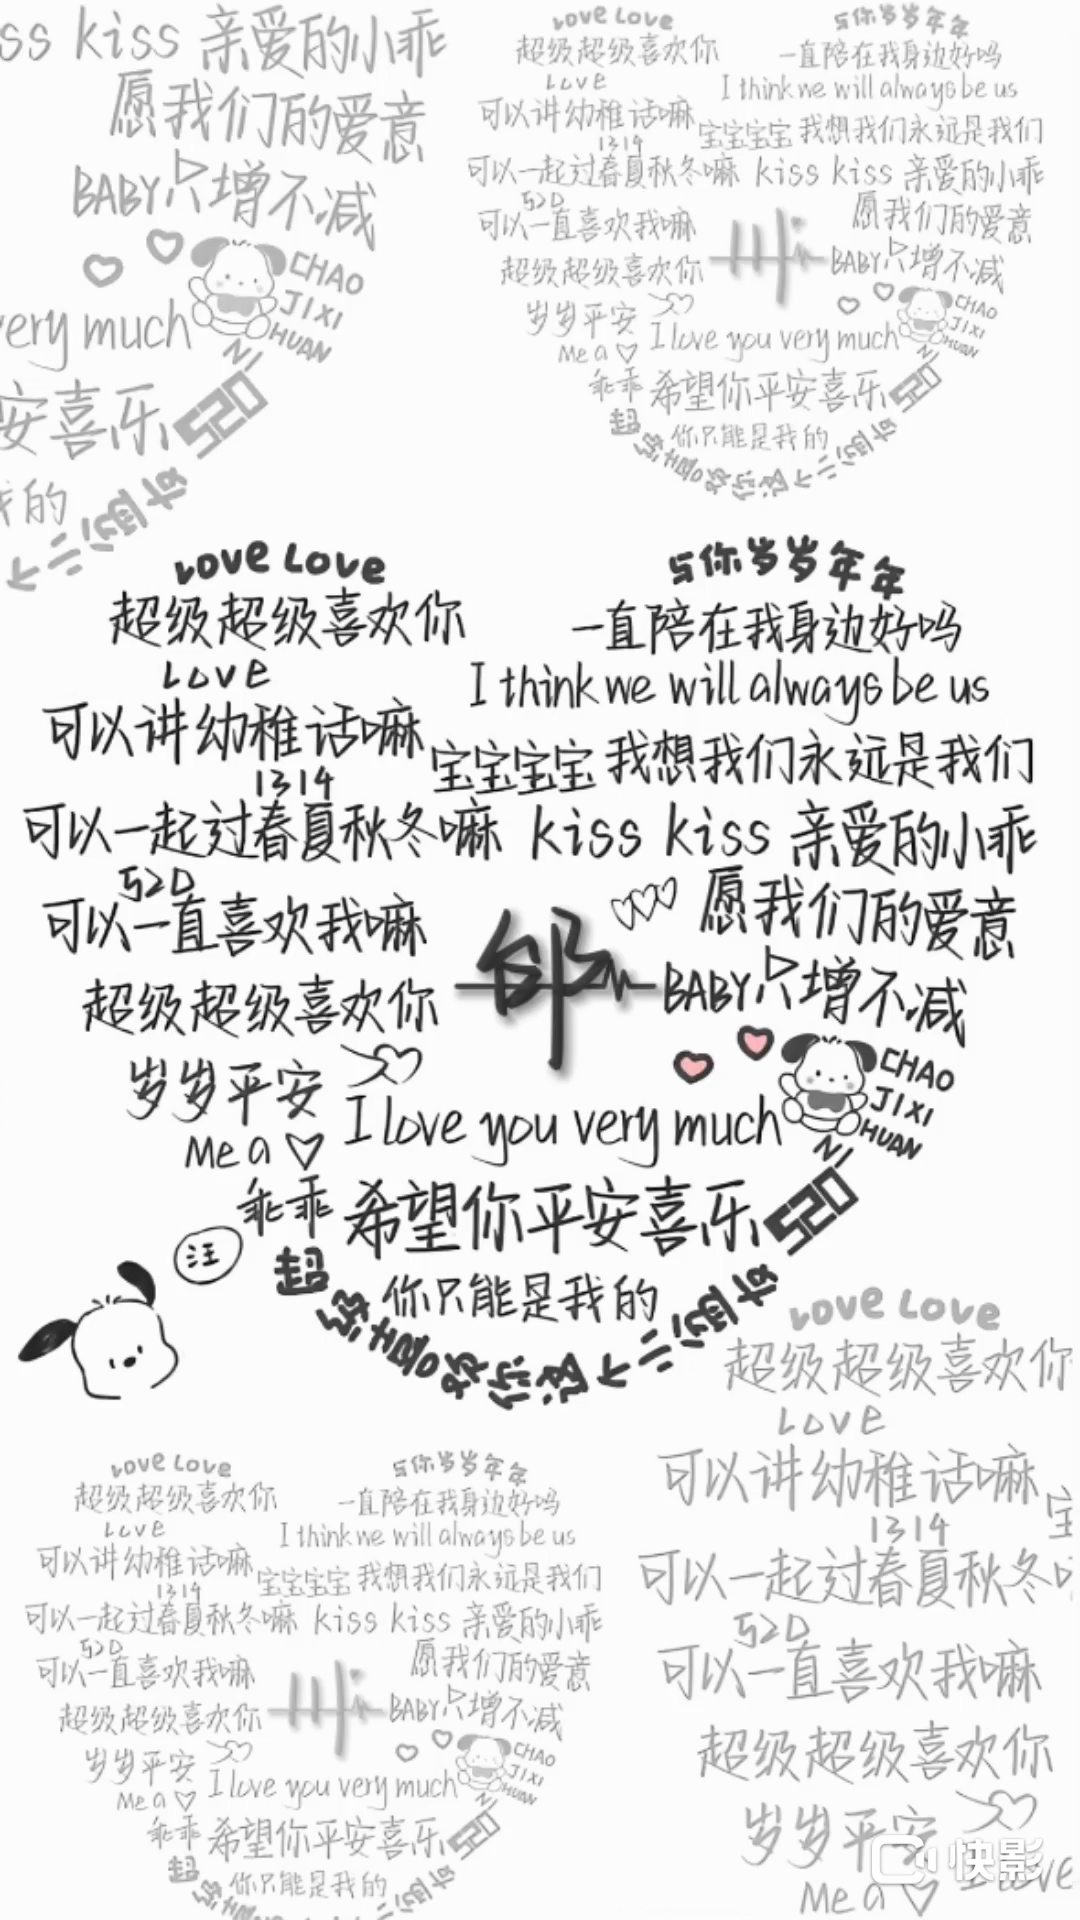 ss kiss 亲爱的小乖
愿我们的爱意
BABY只增不减
CHAO
JIXI
HUAN
NI
very much
安喜乐 520
我的
Love Love
与你岁岁年年
超级超级喜欢你
一直陪在我身边好吗
Love
I think we will always be us
可以讲幼稚话嘛
宝宝宝宝 我想我们永远是我们
1314
可以一起过春夏秋冬嘛 kiss kiss 亲爱的小乖
520
可以一直喜欢我嘛
愿我们的爱意
超级超级喜欢你
BABY只增不减
岁岁平安
CHAO
JIXI
HUAN
NI
Me a
I love you very much
乖乖 希望你平安喜乐 520
你只能是我的
Love Love
与你岁岁年年
超级超级喜欢你
一直陪在我身边好吗
Love
I think we will always be us
可以讲幼稚话嘛
宝宝宝宝 我想我们永远是我们
1314
可以一起过春夏秋冬嘛 kiss kiss 亲爱的小乖
520
可以一直喜欢我嘛
愿我们的爱意
邰
超级超级喜欢你
BABY只增不减
岁岁平安
CHAO
JIXI
HUAN
NI
Me a
I love you very much
乖乖 希望你平安喜乐 520
汪
你只能是我的
超级喜欢你这个二
Love Love
超级超级喜欢你
Love
可以讲幼稚话嘛
1314
宝
可以一起过春夏秋冬
520
可以一直喜欢我嘛
超级超级喜欢你
岁岁平安
Me a
I love
Love Love
与你岁岁年年
超级超级喜欢你
一直陪在我身边好吗
Love
I think we will always be us
可以讲幼稚话嘛
宝宝宝宝 我想我们永远是我们
1314
可以一起过春夏秋冬嘛 kiss kiss 亲爱的小乖
520
可以一直喜欢我嘛
愿我们的爱意
超级超级喜欢你
BABY只增不减
岁岁平安
CHAO
JIXI
HUAN
NI
Me a
I love you very much
乖乖 希望你平安喜乐 520
你只能是我的
快影